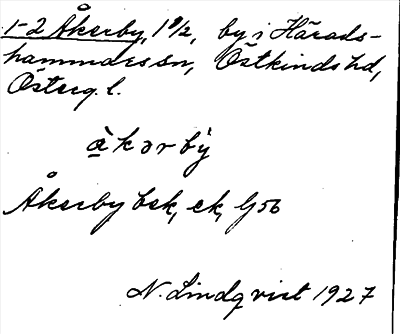 1-2 Åkerby, 1 9/2, by i Härads-
hammars sn, Östkinds hd,
Österg. l.
àkərbÿ
Åkerby bsk, ek, Gsb
N. Lindqvist 1927